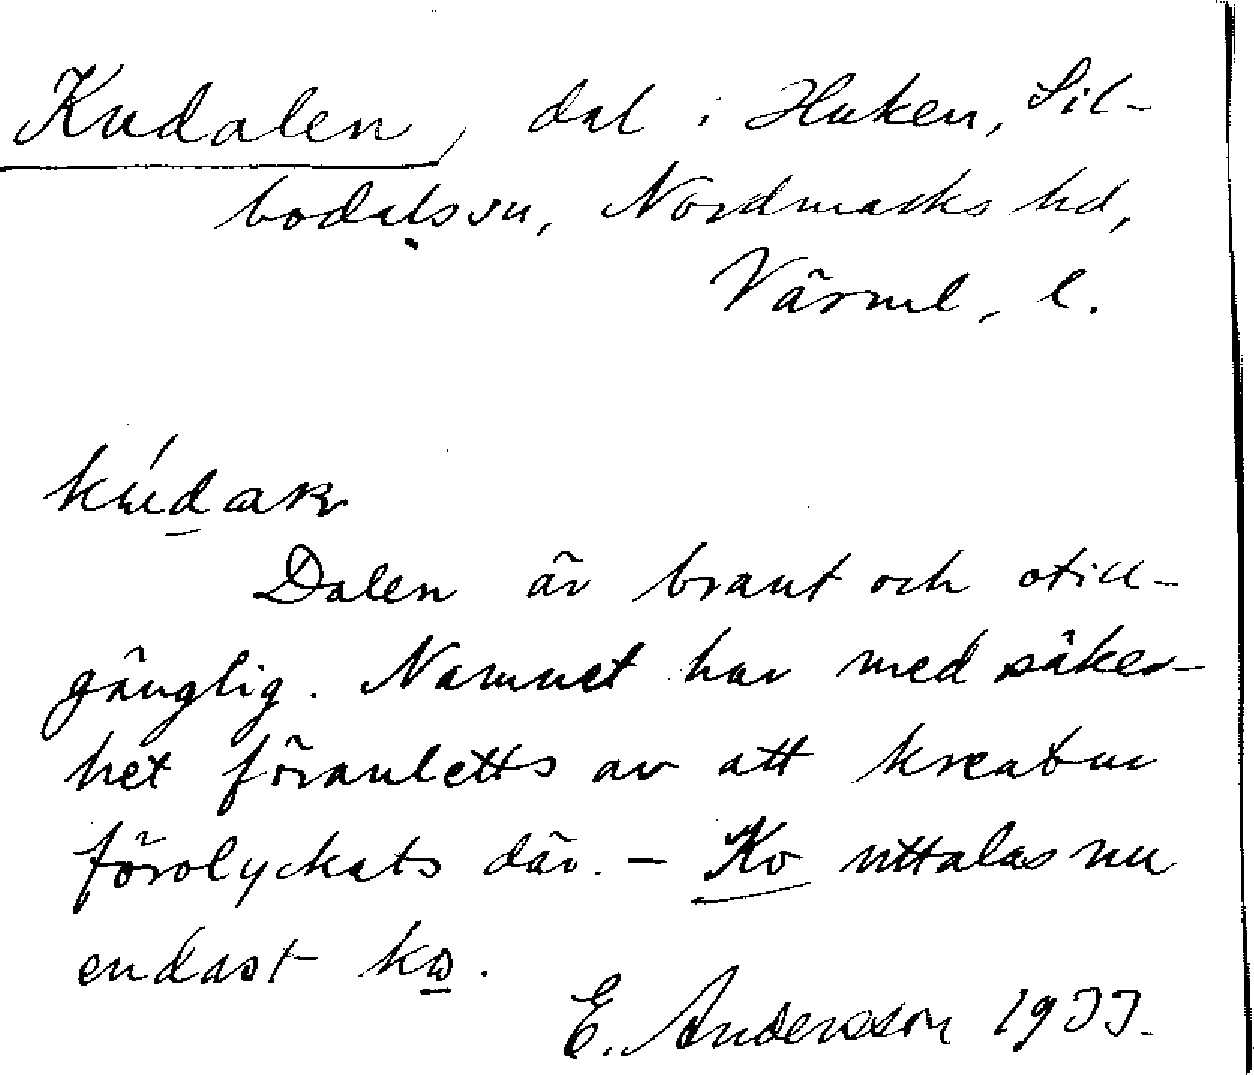 Kudalen, dal i Haken, Sil-
bodals sn, Nordmarks hd,
Värml. l.
Dalen är brant och otill-
gänglig. Namnet har med säker-
het föranletts av att kreatur
förolyckats där. – Ko uttalas nu
endast
E. Andersson 1933.